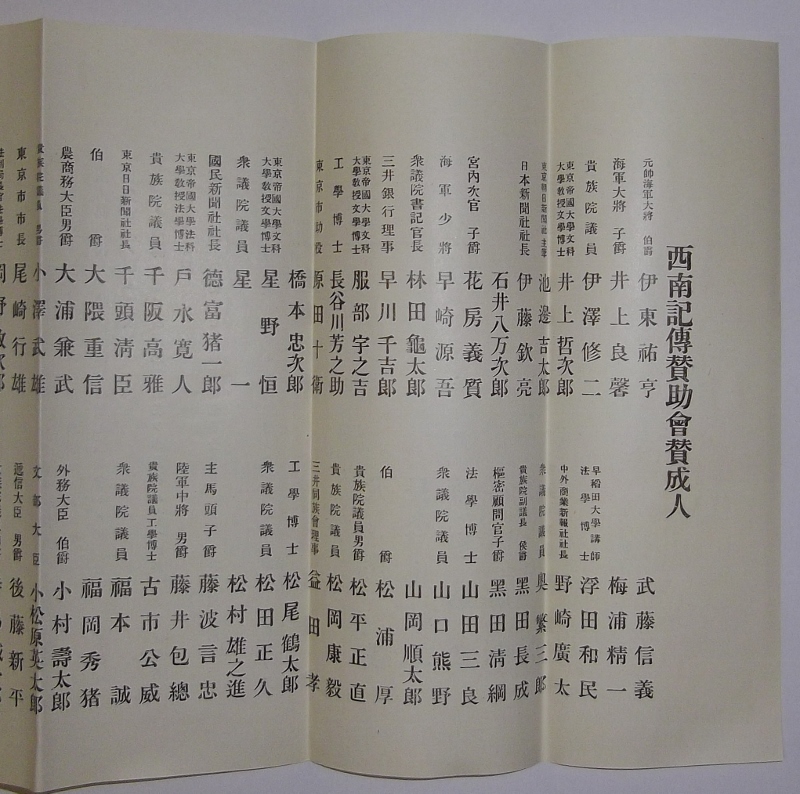 西南記傳贊助會贊成人
元帥海軍大將 伯爵 伊東祐亨
海軍大將 子爵 井上良馨
貴族院議員 伊澤修二
東京帝國大學文科大學教授文學博士 井上哲次郎
東京朝日新聞社主筆 池邊吉太郎
日本新聞社社長 伊藤欽亮
石井八万次郎
宮內次官 子爵 花房義質
海軍少將 早崎源吾
衆議院書記官長 林田龜太郎
三井銀行理事 早川千吉郎
東京帝國大學文科大學教授文學博士 服部宇之吉
工學博士 長谷川芳之助
東京市助役 原田十衛
橋本忠次郎
東京帝國大學文科大學教授文學博士 星野恒
衆議院議員 星一
國民新聞社社長 德富猪一郎
東京帝國大學法科大學教授法學博士 戶水寬人
貴族院議員 千阪高雅
東京日日新聞社社長 千頭清臣
伯爵 大隈重信
農商務大臣男爵 大浦兼武
貴族院議員 男爵 小澤武雄
東京市市長 尾崎行雄
武藤信義
梅浦精一
早稻田大學講師法學博士 浮田和民
中外商業新報社社長 野崎廣太
衆議院議員 奧繁三郎
貴族院副議長 侯爵 黑田長成
樞密顧問官子爵 黑田清綱
法學博士 山田三良
衆議院議員 山口熊野
山岡順太郎
伯爵 松浦厚
貴族院議員男爵 松平正直
貴族院議員 松岡康毅
三井同族會理事 益田孝
工學博士 松尾鶴太郎
衆議院議員 松田正久
松村雄之進
主馬頭子爵 藤波言忠
陸軍中將 男爵 藤井包總
貴族院議員工學博士 古市公威
衆議院議員 福本誠
福岡秀猪
外務大臣 伯爵 小村壽太郎
文部大臣 小松原英太郎
遞信大臣 男爵 後藤新平